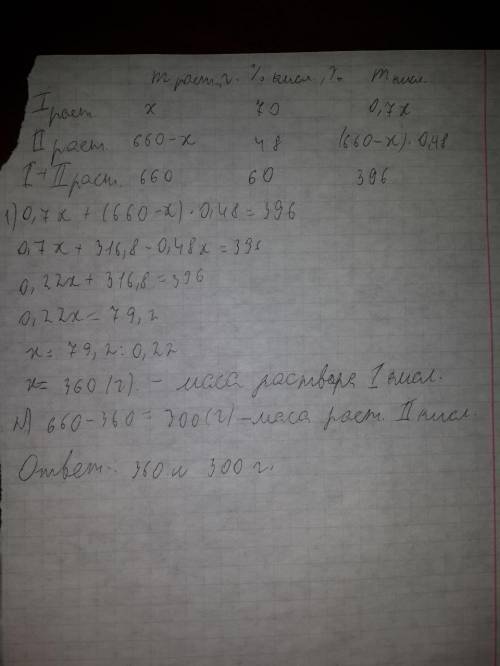 m раст., г. % кисл., % m кисл.
I раст. x 70 0,7x
II раст. 660-x 48 (660-x)·0,48
I+II раст. 660 60 396
1) 0,7x + (660-x)·0,48=396
0,7x + 316,8-0,48x=396
0,22x+316,8=396
0,22x=79,2
x=79,2:0,22
x=360(г) - маса раствора I кисл.
2) 660-360=300(г)-маса раст. II кисл.
Ответ: 360 и 300 г.